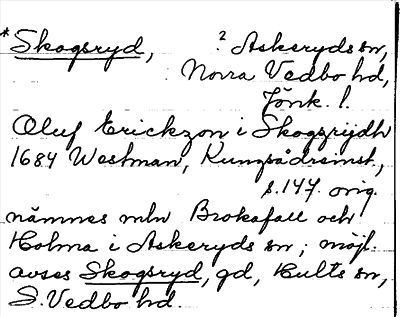 *Skogsryd, ? Askeryds sn,
Norra Vedbo hd,
Jönk. l.
Oluf Erickzon i Skogzrijdh
1684 Westman, Kungsådreinst.,
s. 147. orig.
nämnes mln Brokafall och
Holma i Askeryds sn; möjl.
avses Skogsryd, gd, Hults sn,
S. Vedbo hd.